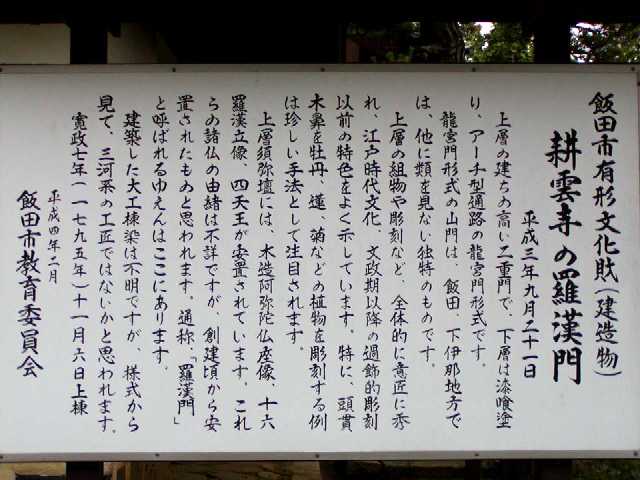 飯田市有形文化財(建造物)
耕雲寺の羅漢門
平成三年九月二十一日
上層の建ちの高い二重門で、下層は漆喰塗
り、アーチ型通路の龍宮門形式です。
龍宮門形式の山門は、飯田、下伊那地方で
は、他に類を見ない独特のものです。
上層の組物や彫刻など、全体的に意匠に秀
れ、江戸時代文化、文政期以降の過飾的彫刻
以前の特色をよく示しています。特に、頭貫
木鼻を牡丹、蓮、菊などの植物を彫刻する例
は珍しい手法として注目されます。
上層須弥壇には、木造阿弥陀仏座像、十六
羅漢立像、四天王が安置されています。これ
らの諸仏の由緒は不詳ですが、創建頃から安
置されたものと思われます。通称、「羅漢門」
と呼ばれるゆえんはここにあります。
建築した大工棟梁は不明ですが、様式から
見て、三河系の工匠ではないかと思われます。
寛政七年(一七九五年)十一月六日上棟
平成四年二月
飯田市教育委員会